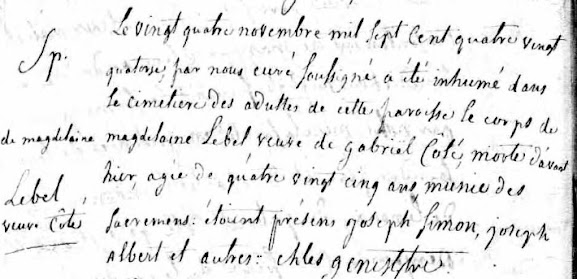 Sp.
de magdelaine
Lebel
veuve Côté
Le vingt quatre novembre mil sept cent quatre vingt
quatorse par nous curé soussigné a été inhumé dans
le cimetiere des adultes de cette paroisse le corps de
magdelaine Lebel veuve de gabriel Côté, morte d'avant
hier, agée de quatre vingt cinq ans munie des
sacremens: étoient présens joseph Simon, joseph
Albert et autres: